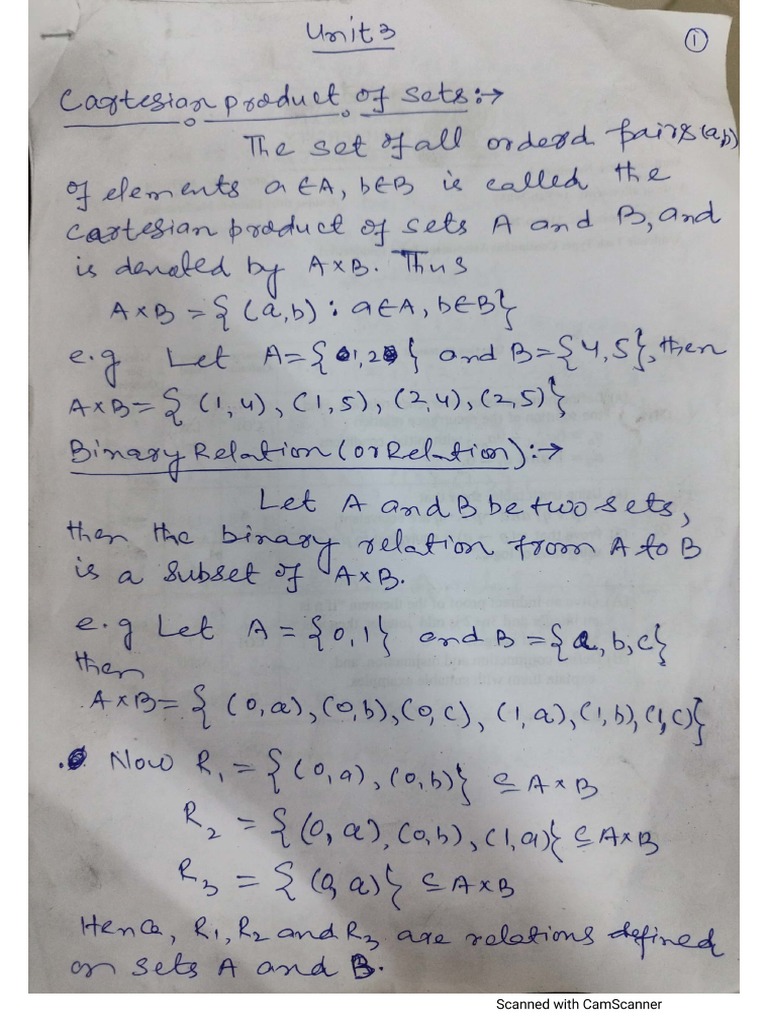 Unit 3
1
Cartesian product of sets:→
The set of all orderd pairs (a,b)
of elements a∈A, b∈B is called the
Cartesian product of sets A and B, and
is denoted by A×B. Thus
A×B = {(a,b) : a∈A, b∈B}
e.g Let A={1,2} and B={4,5}, then
A×B = {(1,4), (1,5), (2,4), (2,5)}
Binary Relation (or Relation):→
Let A and B be two sets,
then the binary relation from A to B
is a subset of A×B.
e.g Let A = {0,1} and B = {a,b,c}
then
A×B = {(0,a),(0,b),(0,c),(1,a),(1,b),(1,c)}
Now R₁ = {(0,a),(0,b)} ⊆ A×B
R₂ = {(0,a),(0,b),(1,a)} ⊆ A×B
R₃ = {(0,a)} ⊆ A×B
Hence, R₁, R₂ and R₃ are relations defined
on sets A and B.
Scanned with CamScanner